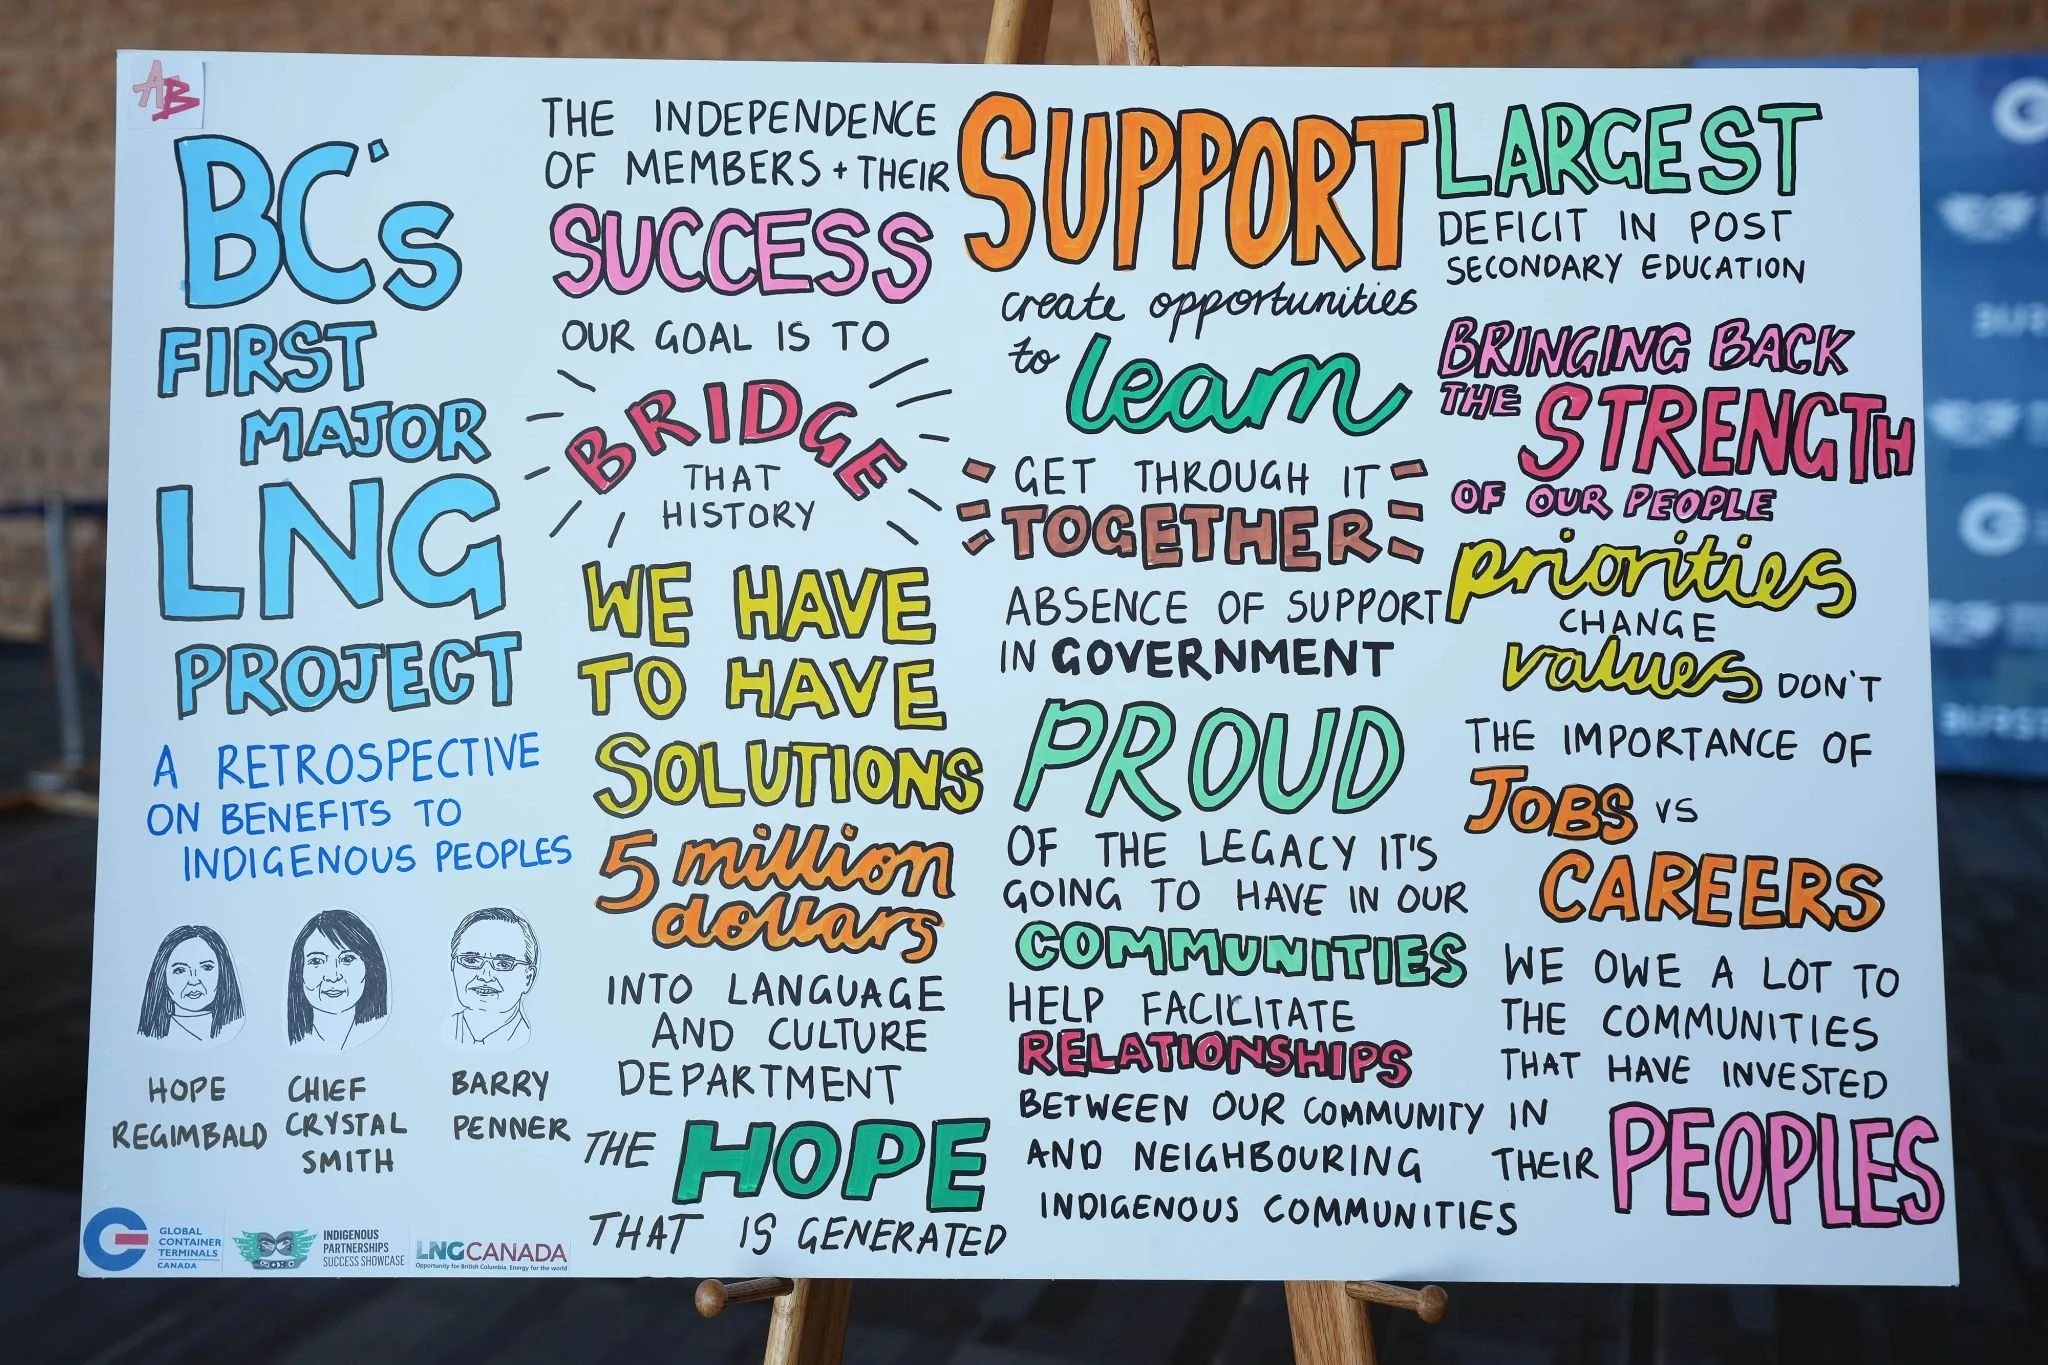 AB
BC's
FIRST
MAJOR
LNG
PROJECT
A RETROSPECTIVE
ON BENEFITS TO
INDIGENOUS PEOPLES
HOPE
REGIMBALD
CHIEF
CRYSTAL
SMITH
BARRY
PENNER
GLOBAL
CONTAINER
TERMINALS
CANADA
INDIGENOUS
PARTNERSHIPS
SUCCESS SHOWCASE
LNGCANADA
Opportunity for British Columbia. Energy for the world
THE INDEPENDENCE
OF MEMBERS + THEIR
SUCCESS
OUR GOAL IS TO
BRIDGE
THAT
HISTORY
WE HAVE
TO HAVE
SOLUTIONS
5 million
dollars
INTO LANGUAGE
AND CULTURE
DEPARTMENT
THE HOPE
THAT IS GENERATED
SUPPORT
create opportunities
to learn
GET THROUGH IT
TOGETHER
ABSENCE OF SUPPORT
IN GOVERNMENT
PROUD
OF THE LEGACY IT'S
GOING TO HAVE IN OUR
COMMUNITIES
HELP FACILITATE
RELATIONSHIPS
BETWEEN OUR COMMUNITY
AND NEIGHBOURING
INDIGENOUS COMMUNITIES
LARGEST
DEFICIT IN POST
SECONDARY EDUCATION
BRINGING BACK
THE STRENGTH
OF OUR PEOPLE
priorities
CHANGE
values DON'T
THE IMPORTANCE OF
JOBS VS
CAREERS
WE OWE A LOT TO
THE COMMUNITIES
THAT HAVE INVESTED
IN
THEIR PEOPLES